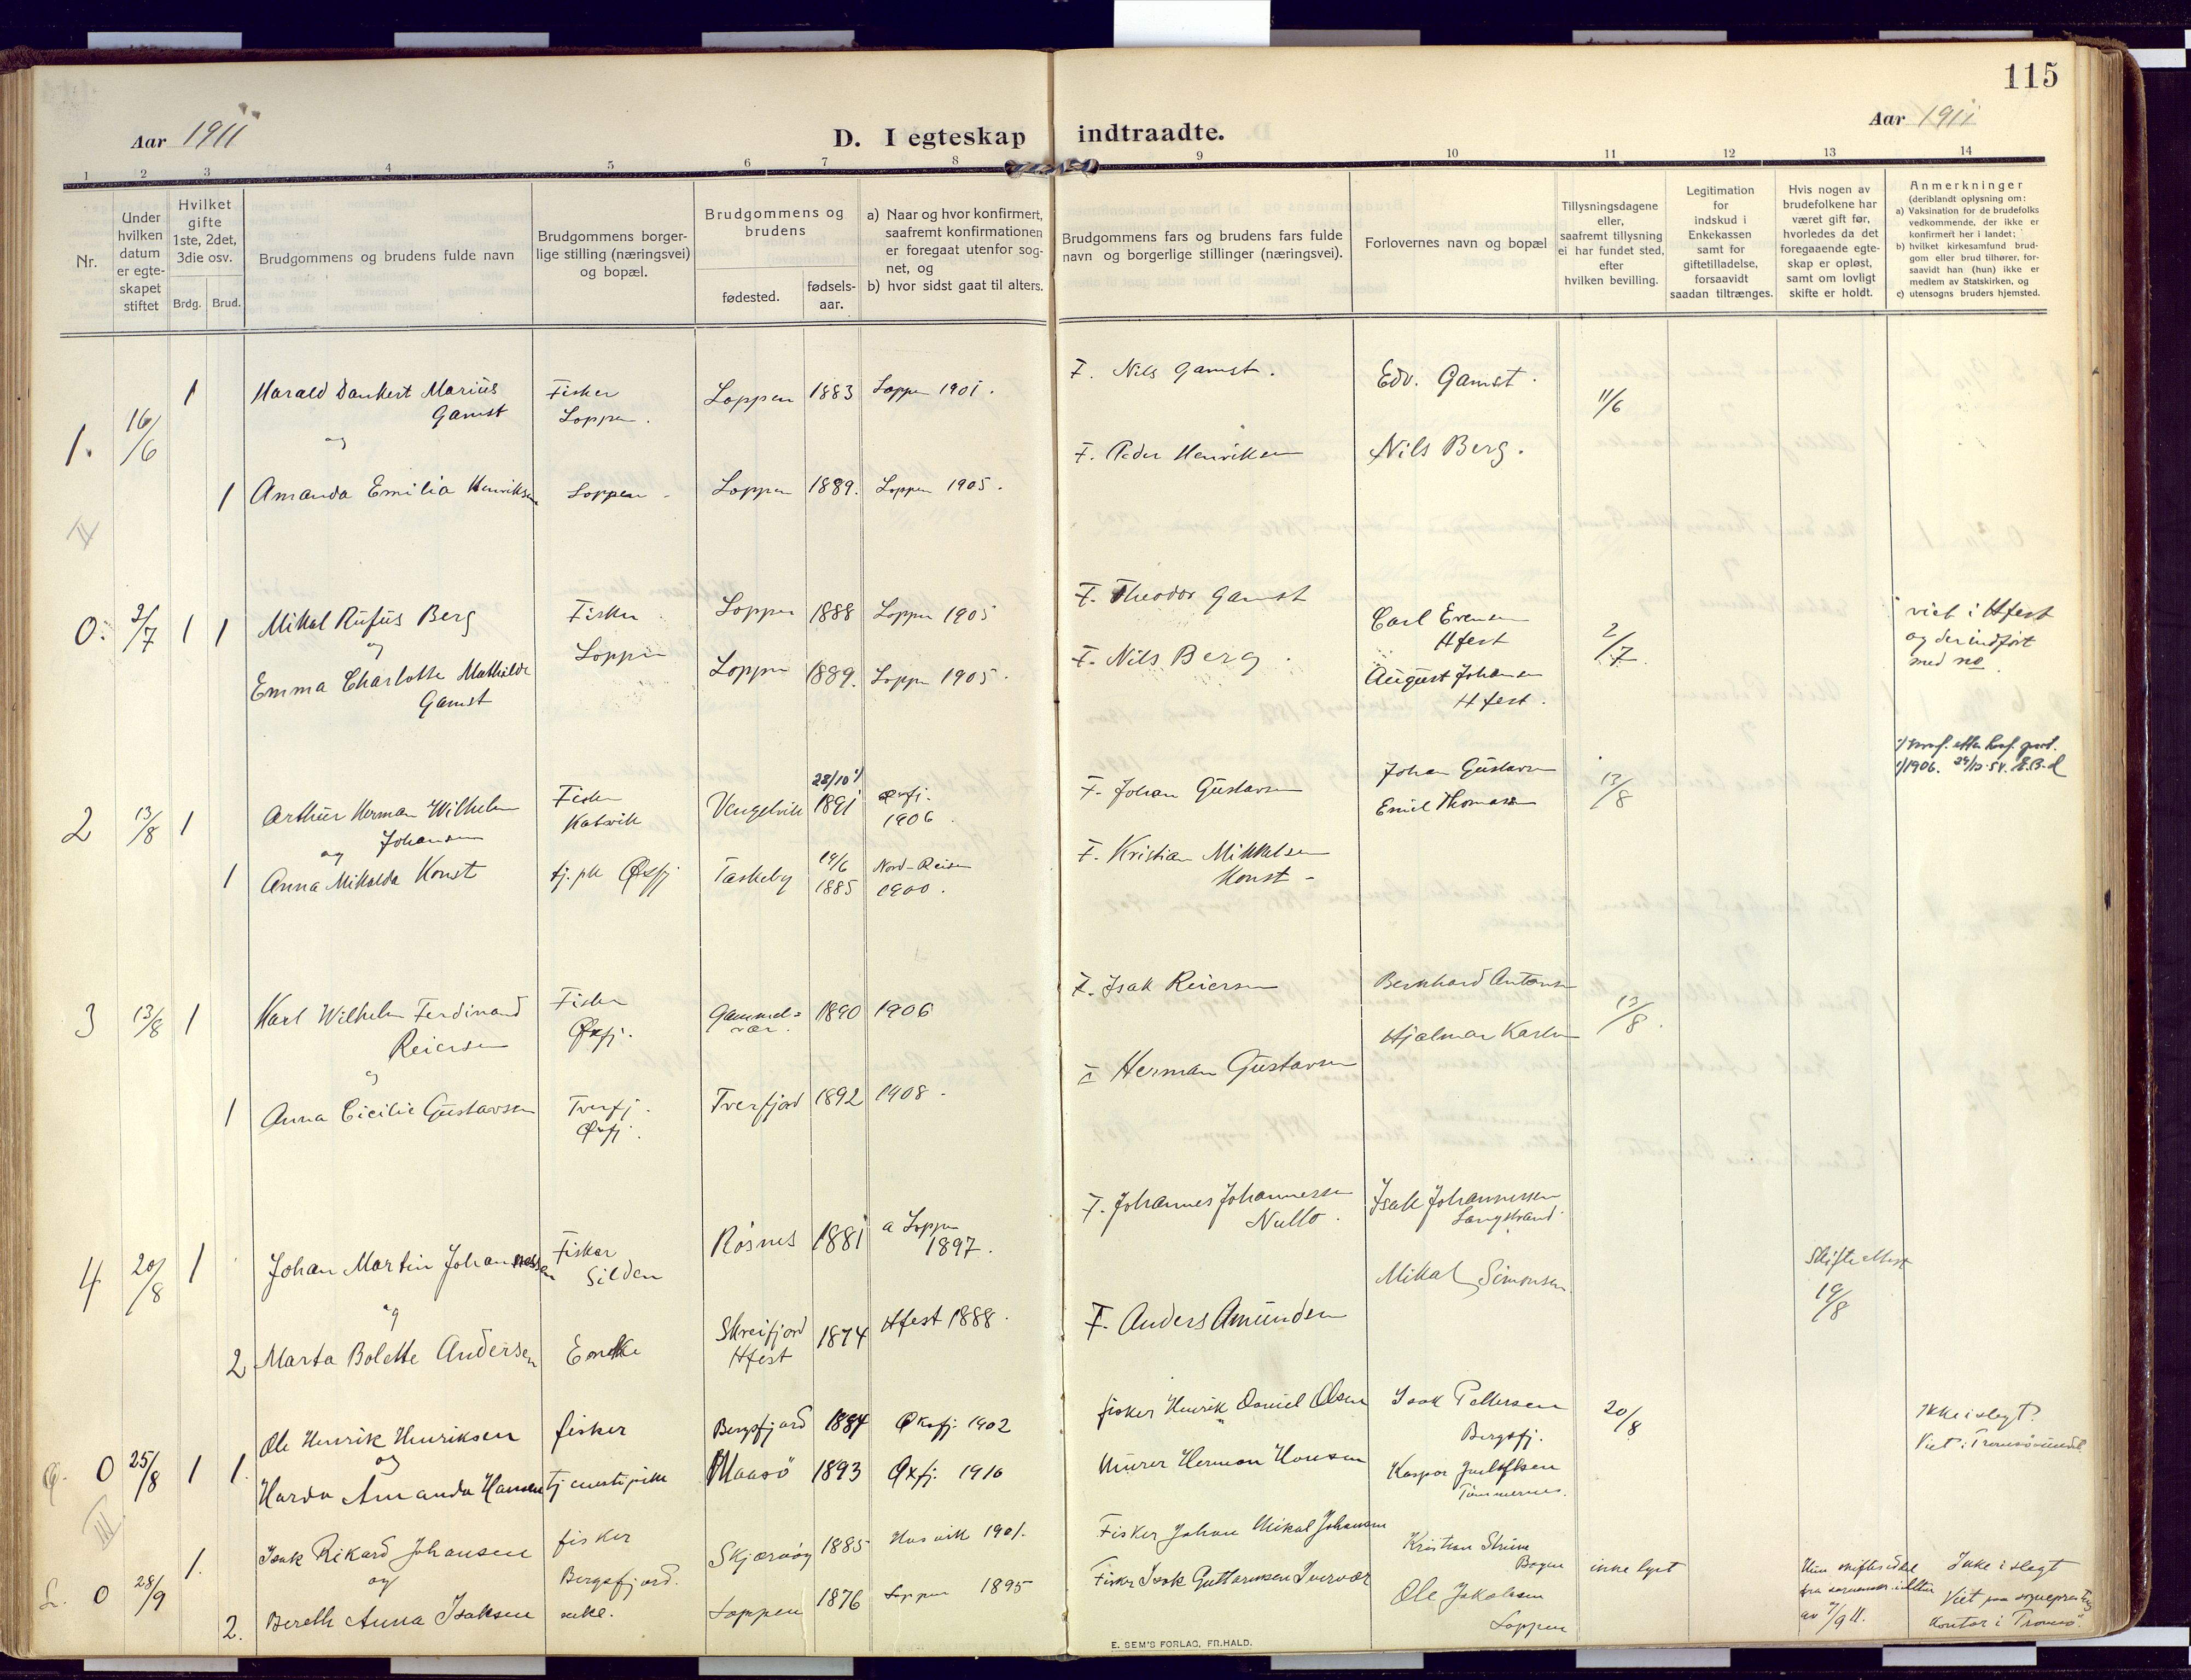 115
Aar 1911
D. I egteskap indtraadte.
Aar 1911
1 2 3 4 5 6 7 8 9 10 11 12 13 14
Nr.
Under hvilken datum er egteskapet stiftet
Hvilket gifte 1ste, 2det, 3die osv.
Brdg. Brud.
Brudgommens og brudens fulde navn
Brudgommens borgerlige stilling (næringsvei) og bopæl.
Brudgommens og brudens
fødested.
fødselsaar.
a) Naar og hvor konfirmert, saafremt konfirmationen er foregaat utenfor sognet, og
b) hvor sidst gaat til alters.
Brudgommens fars og brudens fars fulde navn og borgerlige stillinger (næringsvei).
Forlovernes navn og bopæl
Tillysningsdagene eller, saafremt tillysning ei har fundet sted, efter hvilken bevilling.
Legitimation for indskud i Enkekassen samt for giftetilladelse, forsaavidt saadan tiltrænges.
Hvis nogen av brudefolkene har været gift før, hvorledes da det foregaaende egteskap er opløst, samt om lovligt skifte er holdt.
Anmerkninger
(deriblandt oplysning om:
a) Vaksination for de brudefolks vedkommende, der ikke er konfirmert her i landet;
b) hvilket kirkesamfund brudgom eller brud tilhører, forsaavidt han (hun) ikke er medlem av Statskirken, og
c) utensogns bruders hjemsted.
1. 16/6 1 Harald Dankert Marius Gamst Fisker Loppen. Loppen 1883 Loppen 1901. F. Nils Gamst. Edv. Gamst. 11/6
og
1 Amanda Emilia Henriksen Loppen - Loppen 1889. Loppen 1905. F. Peder Henriksen Nils Berg.
II
0. 2/7 1 1 Mikal Rufus Berg Fisker Loppen Loppen 1888 Loppen 1905 F. Theodor Gamst Carl Evensen Hfest 2/7 viet i Hfest og der indført med no
og
Emma Charlotte Mathilde Gamst Loppen 1889. Loppen 1905. F. Nils Berg. August Johansen Hfest.
2 13/8 1 Arthur Herman Wilhelm Johansen Fisker Katvik Vengelvik 28/10 1) 1891 Øxfj. 1906. F. Johan Gustavsen Johan Gustavsen Emil Thomasen 13/8
og
1 Anna Mikalda Konst tj. pk Øxfj Taskeby 19/6 1885 Nord-Reisen 1900. F. Kristian Mikkalsen Konst -
3 13/8 1 Karl Wilhelm Ferdinand Reiersen Fisker Øxfj. Gammelvær. 1890 1906 F. Isak Reiersen Bernhard Antonsen 13/8.
og
1 Anna Cicilie Gustavsen Tverfj. Øxfj. Tverfjord 1892 1908. F Herman Gustavsen Hjalmar Karlsen
4 20/8 1 Johan Martin Johannessen Fisker Silden Rosnes 1881 a Loppen 1897. F. Johannes Johannessen Nullo. Isak Johannessen Langstrand
og
2 Marta Bolette Andersen Enke Skreifjord Hfest 1874 Hfest 1888. F. Anders Amundsen Mikal Simonsen. 19/8
0 25/8 1 1. Ole Henrik Henriksen fisker Bergsfjord 1884 Øksfj. 1902 fisker Henrik Daniel Olsen Isak Pettersen Bergsfj. 20/8 Ikke i slegt. Viet i Tromsøsundet
og
Harda Amanda Hansen tjenestepike Maasö 1893 Øxfj. 1910 Murer Herman Hansen Kaspar Tømmernes.
III
0 28/9 1. Isak Rikard Johansen fisker Bergsfjord. Skjærvøy 1885 1901. Fisker Johan Mikal Johansen Kristian ikke lyst Ikke i slegt
og
2. Bereth Anna Isaksen enke. Loppen 1876 Loppen 1895 Fisker Isak Ole Jakobsen Loppen av 7/9 11. Viet paa sogneprestens kontor i Tromsö.
E. SEM'S FORLAG, FR.HALD.